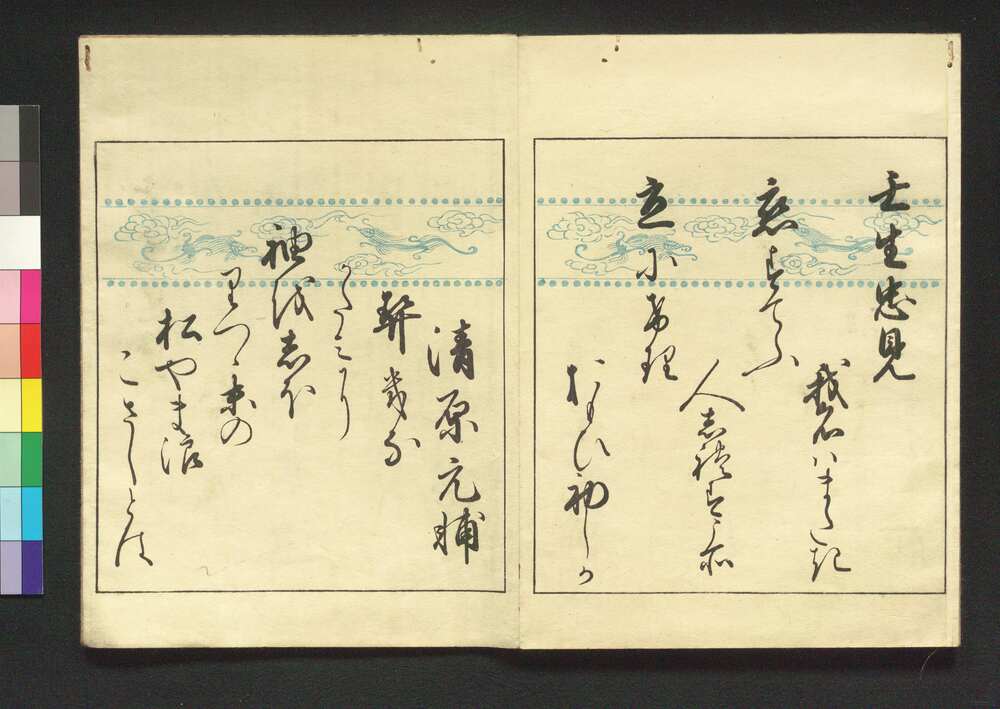 壬生忠見
恋すてふ
我名はまたき
立にけり
人しれすこそ
おもひ初しか
清原元輔
契きな
かたみに
袖をしほ
りつゝ末の
松やま浪
こさしとは